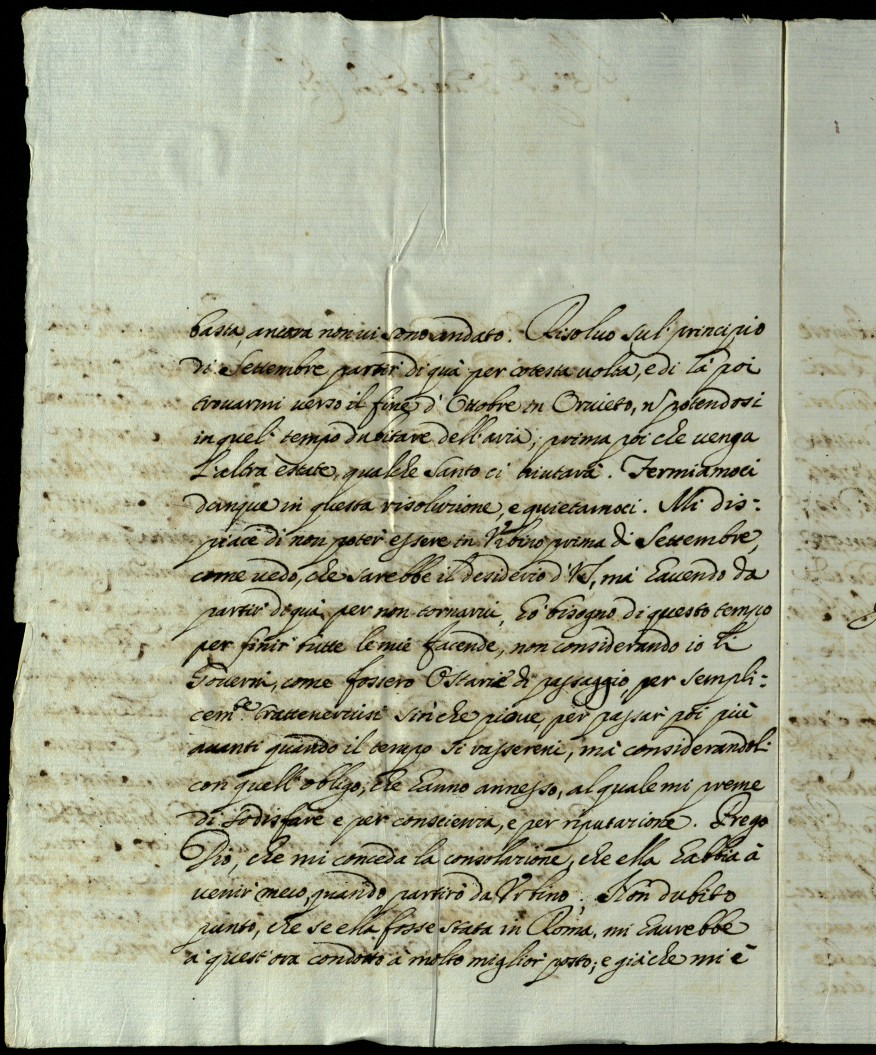 basta, ancora non ui sono andato. Risoluo sul' principio
di Settembre partir' di quà per cotesta uolta, e di là poi
trouarmi uerso il fine d'Ottobre in Oruieto, nõ potendosi
in quel' tempo dubitare dell'aria; prima poi che uenga
l'altra estate, qualche Santo ci aiutarà. Fermiamoci
dunque in questa risoluzione, e quietamoci. Mi dis=
piace di non poter' essere in Vrbino prima di Settembre,
come uedo, che sarebbe il desiderio di VS, mà hauendo da
partir' di quà per non tornarui, hò bisogno di questo tempo
per finir' tutte le mie facende, non considerando io li
Gouerni, come fossero Ostarie di passaggio, per sempli=
cem.te tratteneruisi sin che pioue, per passar' poi più
auanti quando il tempo si rassereni, mà considerandoli
con quell'obligo, che hanno annesso, al quale mi preme
di sodisfare e per conscienza, e per riputazione. Prego
Dio, che mi conceda la consolazione, che ella habbia à
uenir' meco, quando partirò da Vrbino; Non dubito
punto, che se ella fosse stata in Roma, mi haurebbe
à quest'ora condotto à molto miglior' posto; e già che mi è